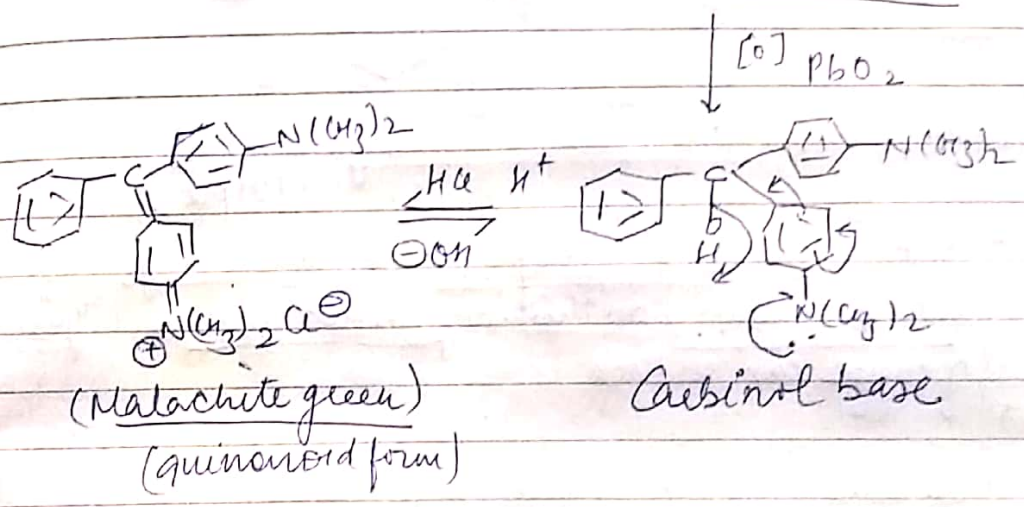 [o] PbO2
N(CH3)2
N(CH3)2
C
HCl H+
C
⊖OH
O
H
⊕N(CH3)2 Cl⊖
N(CH3)2
(Malachite green)
Carbinol base
(quinonoid form)